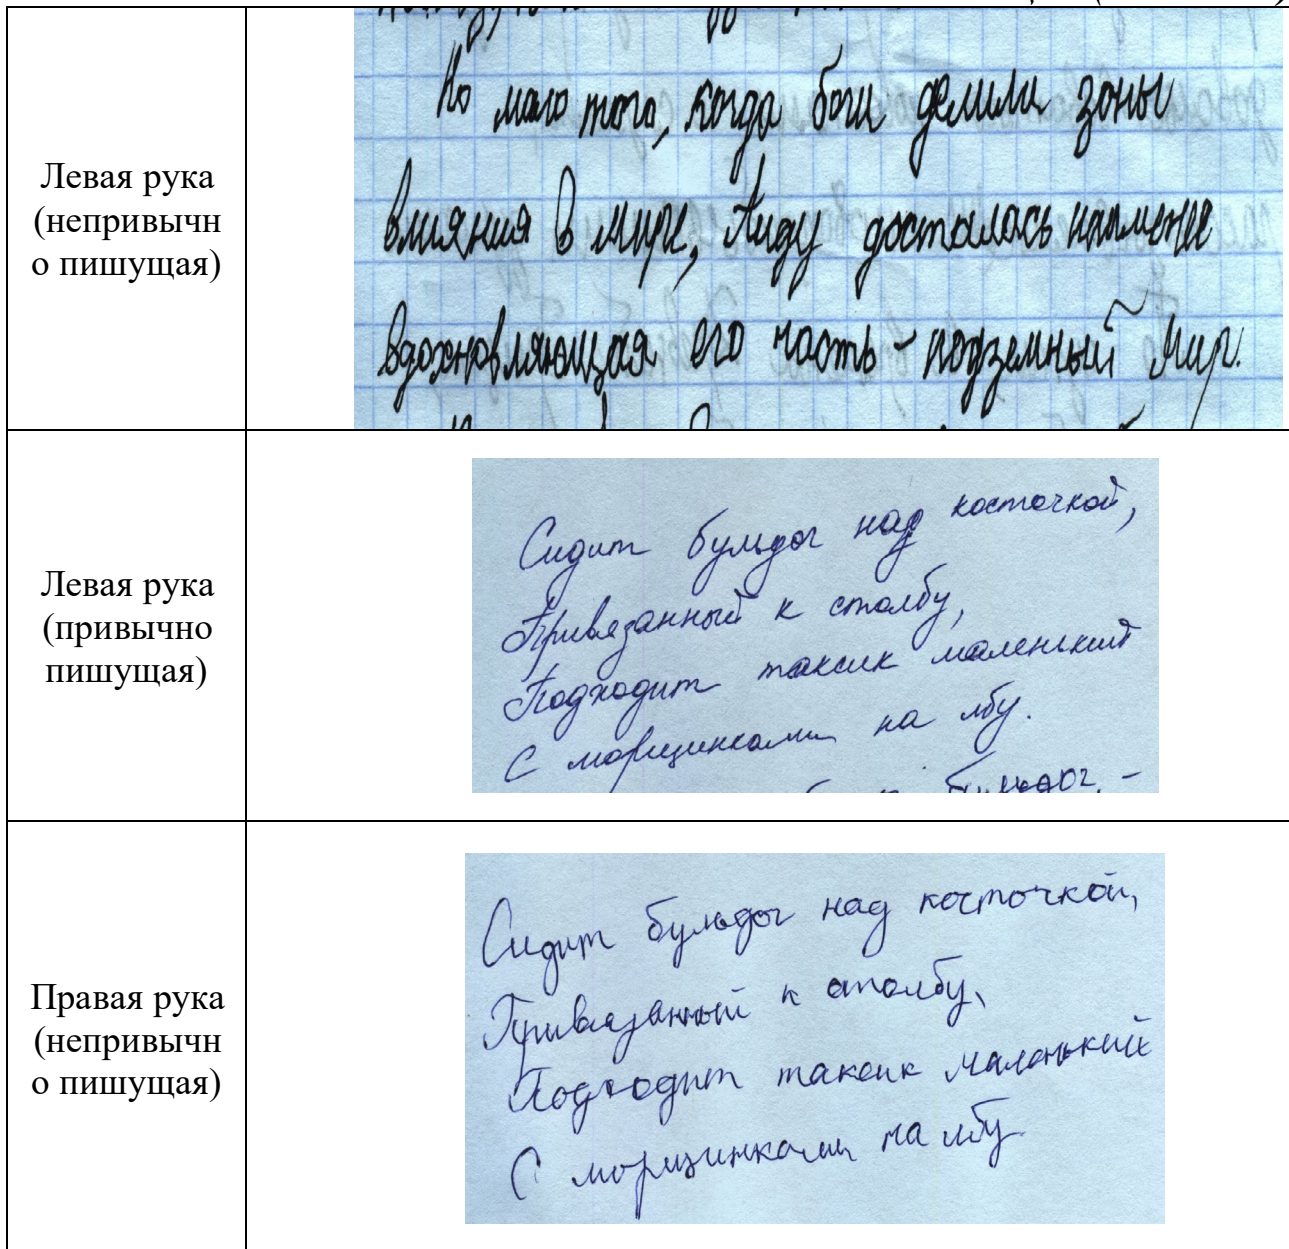 Левая рука
(непривычн
о пишущая)
Но мало того, когда боги делили зоны
влияния в мире, Аиду досталась наименее
вдохновляющая его часть - подземный мир.
Левая рука
(привычно
пишущая)
Сидит бульдог над косточкой,
Привязанный к столбу,
Подходит таксик маленький
С морщинками на лбу.
бульдог, -
Правая рука
(непривычн
о пишущая)
Сидит бульдог над косточкой,
Привязанный к столбу,
Подходит таксик маленький
С морщинками на лбу